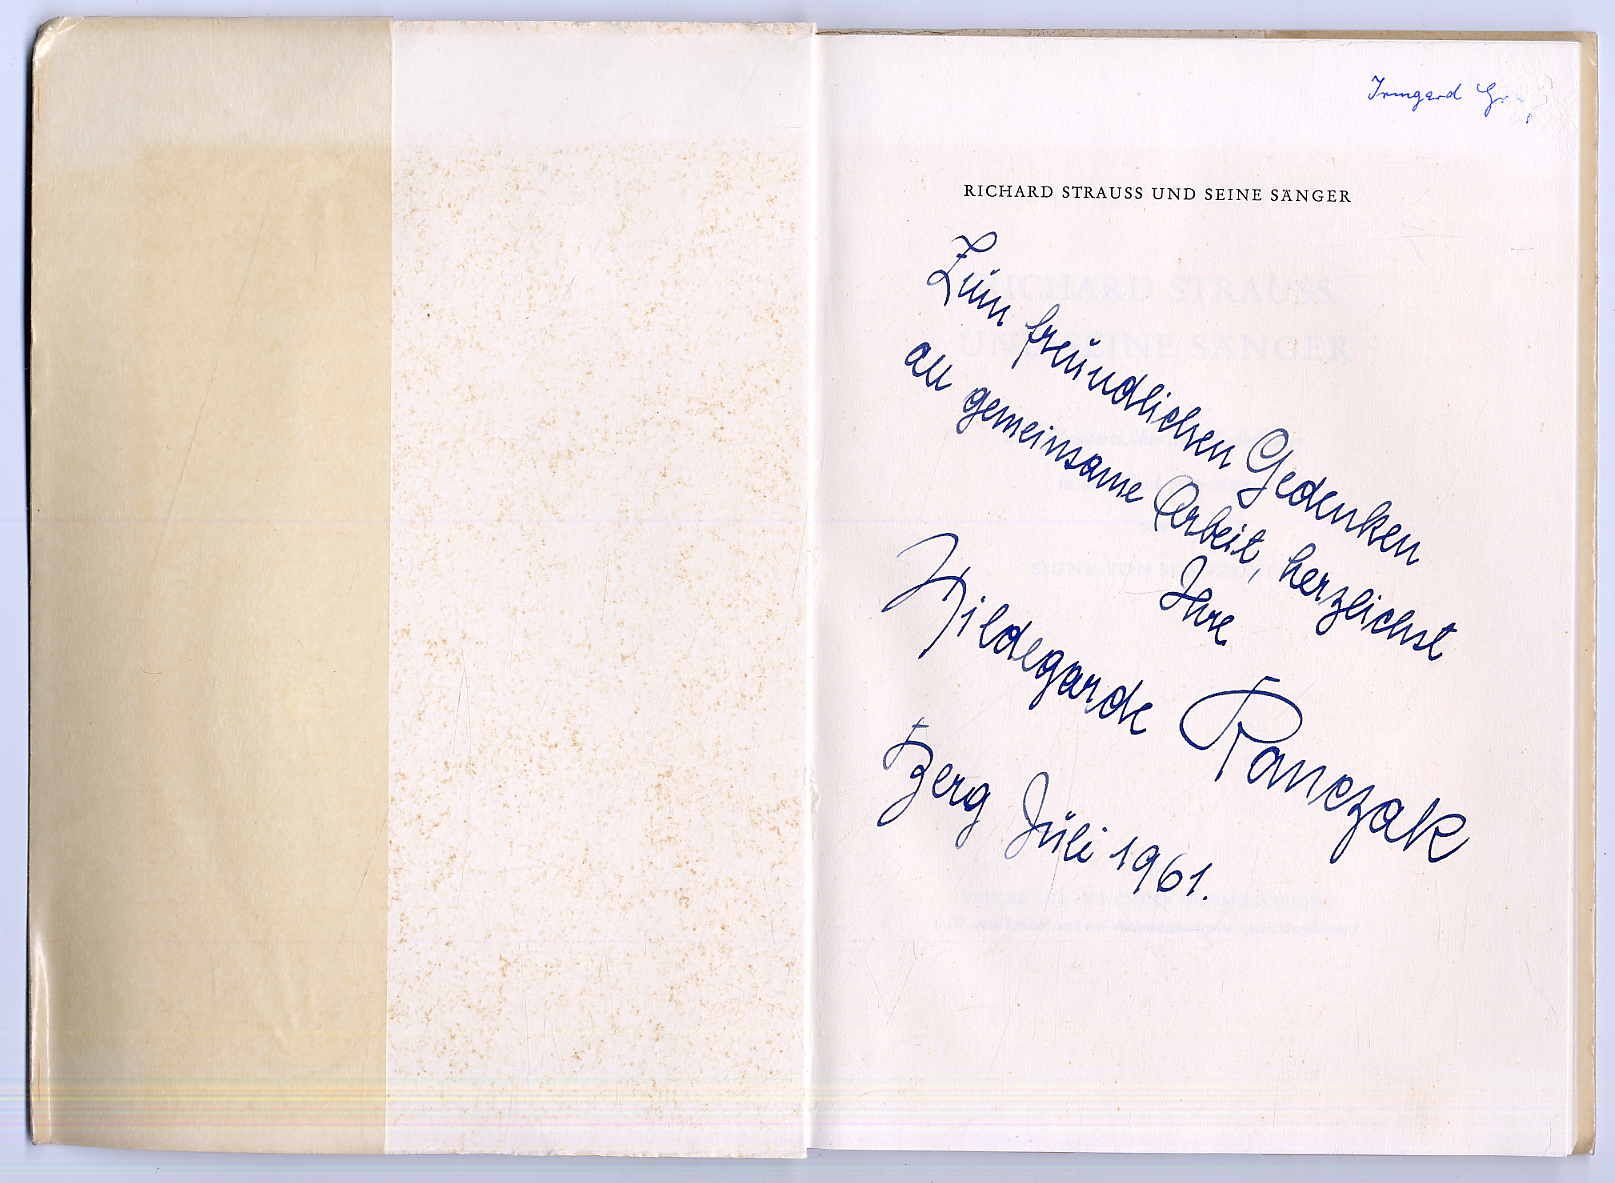 Irmgard
RICHARD STRAUSS UND SEINE SÄNGER
Zum freundlichen Gedenken
an gemeinsame Arbeit, herzlichst
Ihre
Hildegarde Ranczak
Berg Juli 1961.
RICHARD STRAUSS
UND SEINE SÄNGER